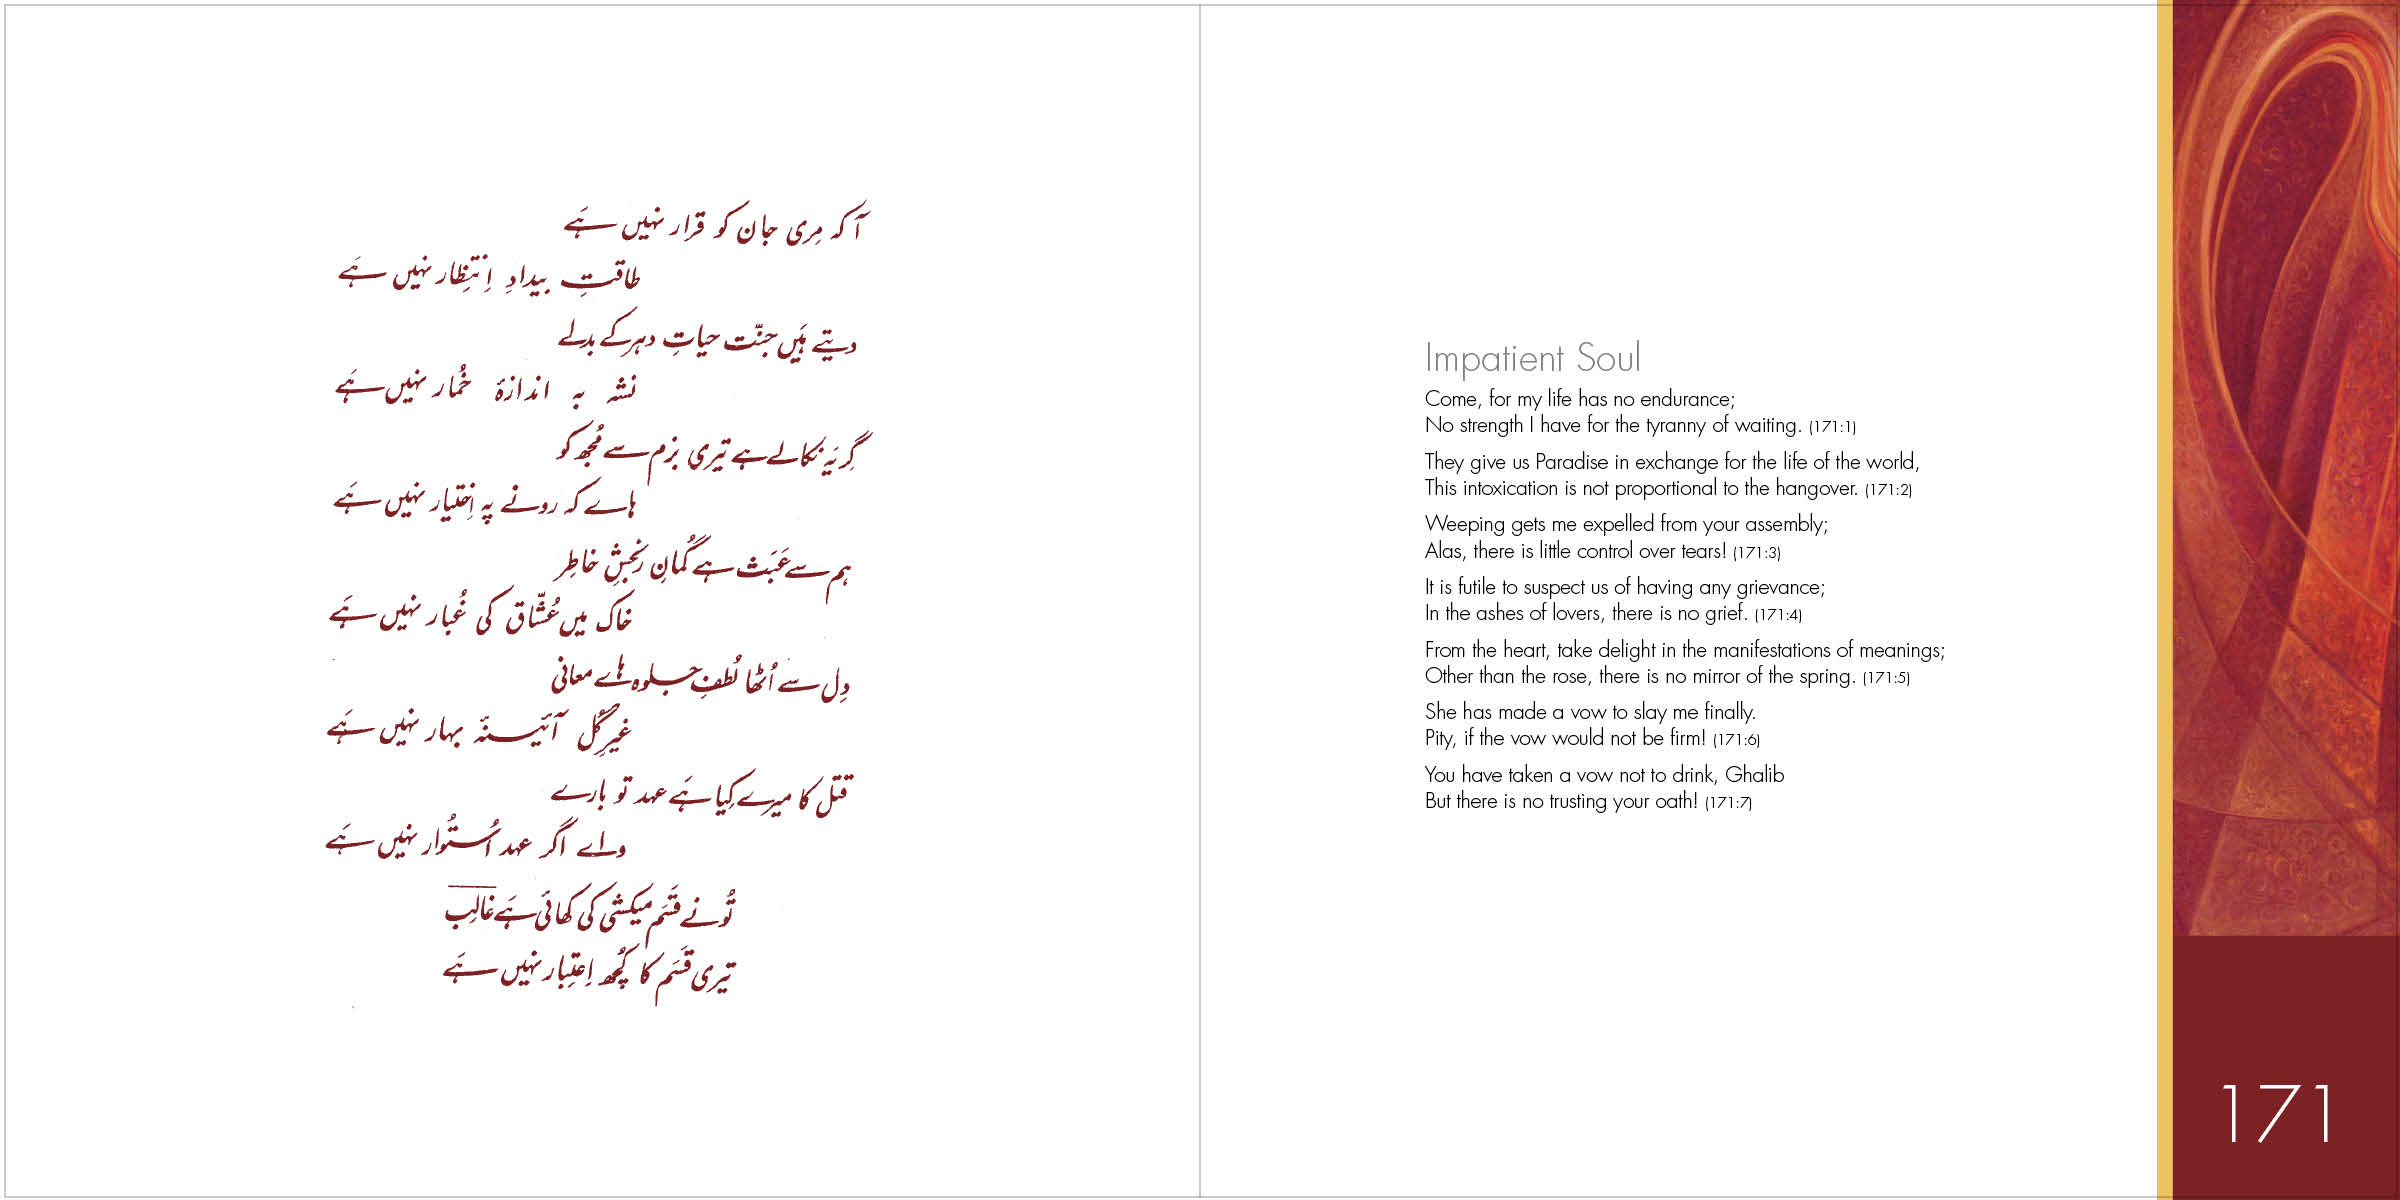 آ کہ مِری جان کو قرار نہیں ہَے
طاقتِ بیدادِ اِنتِظار نہیں ہَے
دیتے ہَیں جنّت حیاتِ دہر کے بدلے
نشہ بہ اندازۂ خُمار نہیں ہَے
گِریَہ نکالے ہے تیری بزم سے مُجھ کو
ہاے کہ رونے پہ اِختیار نہیں ہَے
ہم سے عَبَث ہے گُمانِ رنجشِ خاطِر
خاک میں عُشّاق کی غُبار نہیں ہَے
دِل سے اُٹھا لُطفِ جلوہ ہاے معانی
غیرِ گُل آئینۂ بہار نہیں ہَے
قتل کا میرے کِیا ہَے عہد تو بارے
واے اگر عہد اُستُوار نہیں ہَے
تُو نے قسَم میکشی کی کھائی ہَے غالِب
تیری قسَم کا کُچھ اِعتِبار نہیں ہَے
Impatient Soul
Come, for my life has no endurance;
No strength I have for the tyranny of waiting. (171:1)
They give us Paradise in exchange for the life of the world,
This intoxication is not proportional to the hangover. (171:2)
Weeping gets me expelled from your assembly;
Alas, there is little control over tears! (171:3)
It is futile to suspect us of having any grievance;
In the ashes of lovers, there is no grief. (171:4)
From the heart, take delight in the manifestations of meanings;
Other than the rose, there is no mirror of the spring. (171:5)
She has made a vow to slay me finally.
Pity, if the vow would not be firm! (171:6)
You have taken a vow not to drink, Ghalib
But there is no trusting your oath! (171:7)
171